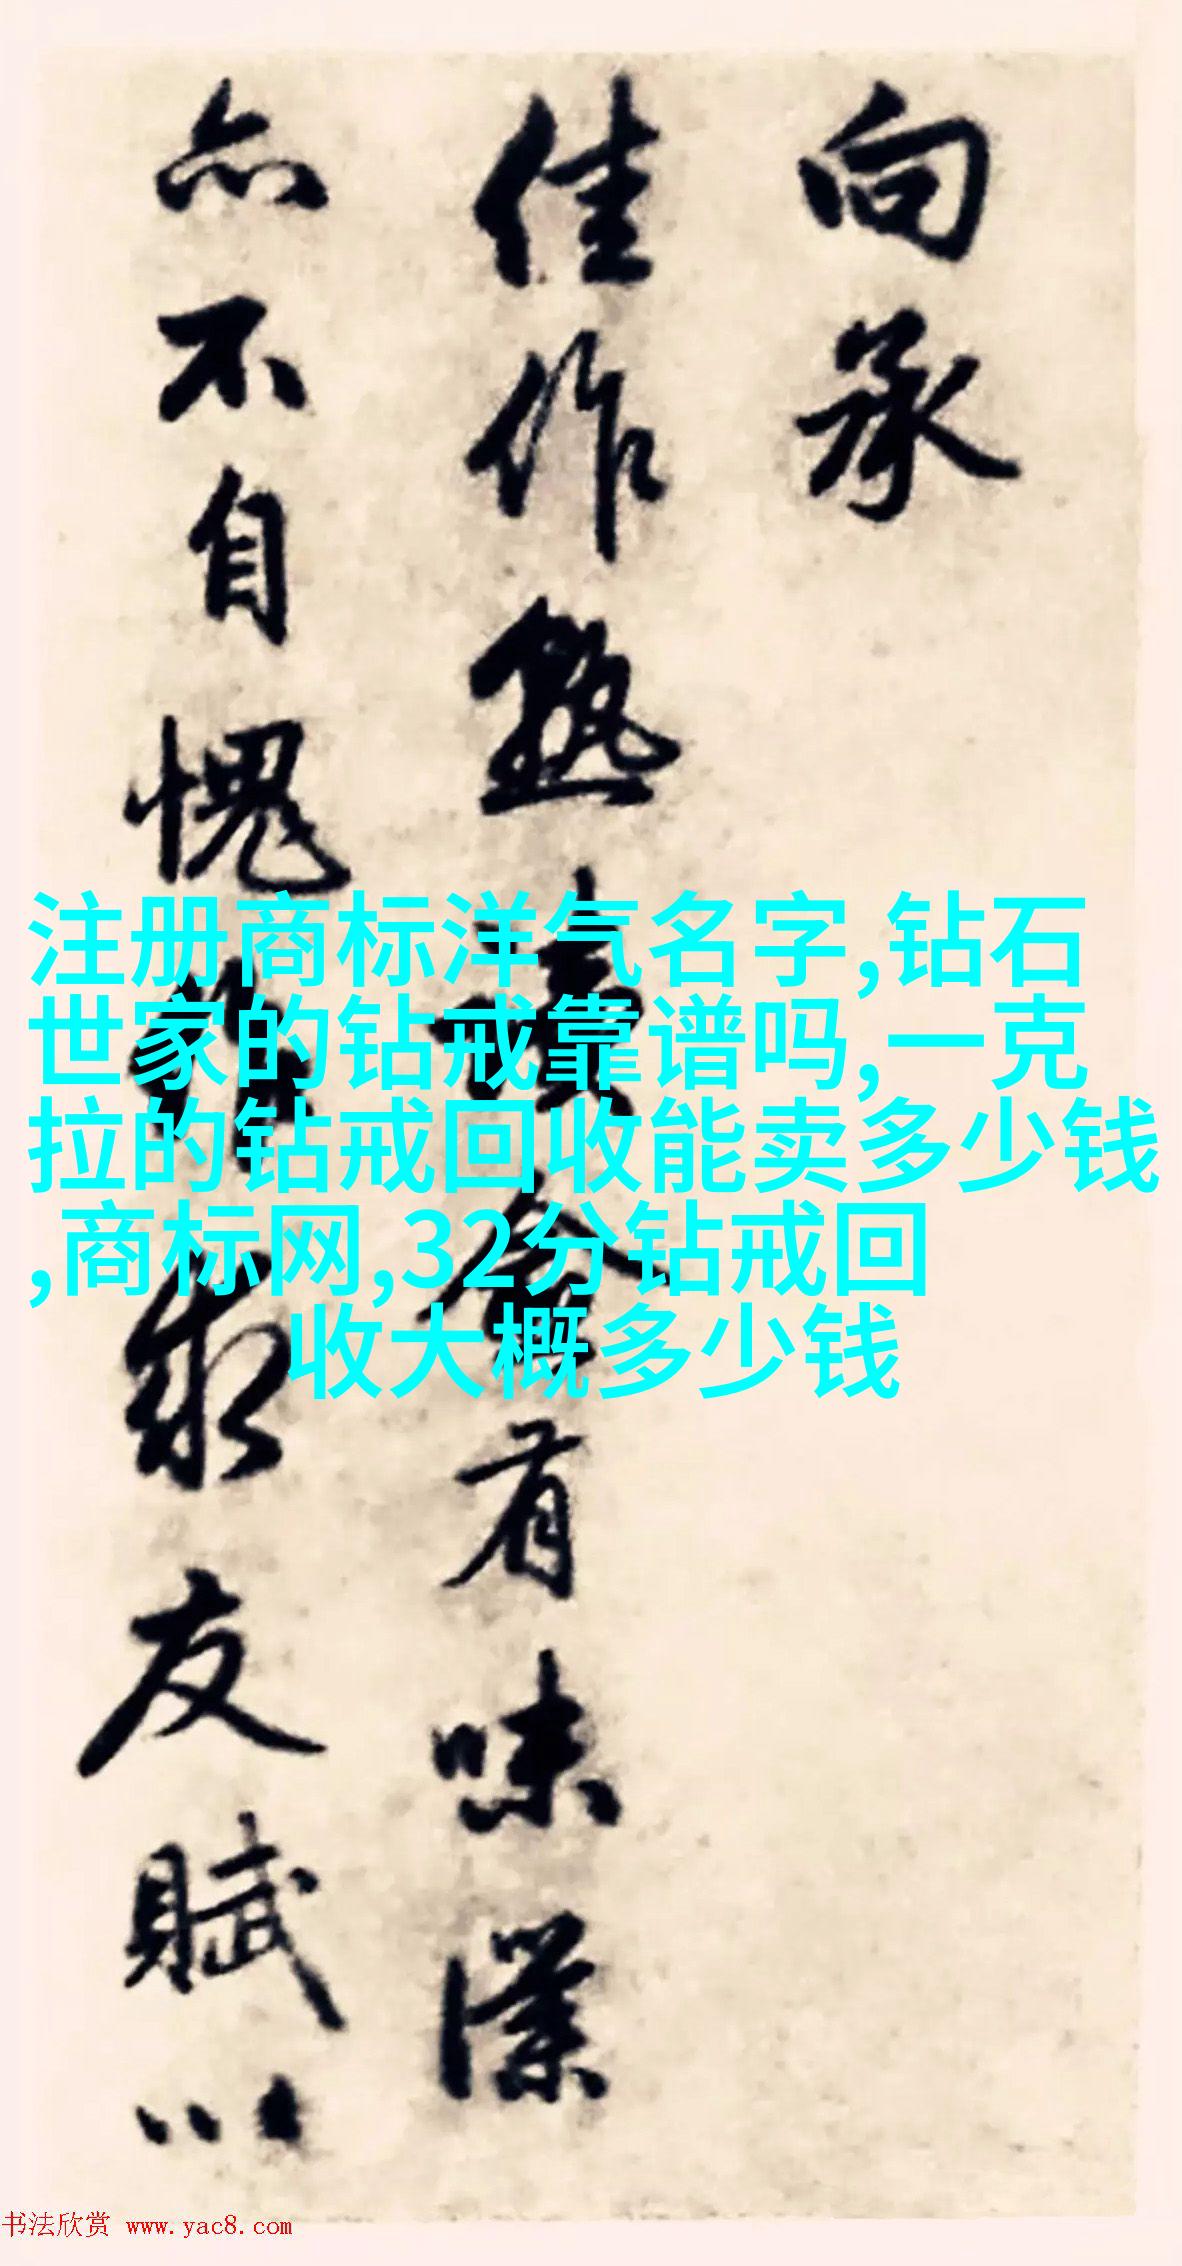 向承
佳作熟讀愈有味僕
亦不自愧作求友賦以
注册商标洋气名字,钻石
世家的钻戒靠谱吗,一克
拉的钻戒回收能卖多少钱
,商标网,32分钻戒回
收大概多少钱
书法欣赏 www.yac8.com